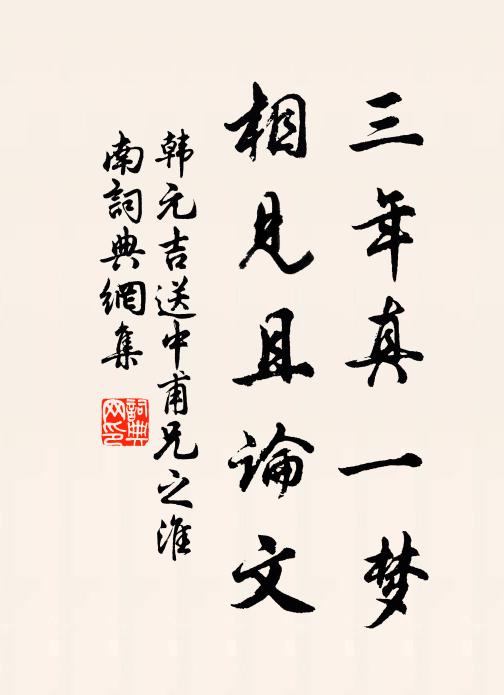 三年真一梦
相见且論文
韩元吉送中甫兄之淮
南詞典網集
詞典
网印